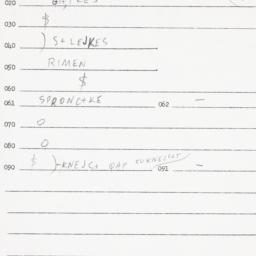 020
030 $
040 ) S+LEJKES
050 RIMEN
$
060
061 SPRONC+KE 062 —
070 O
080 O
090 $ )-KNEJS+ 091 —